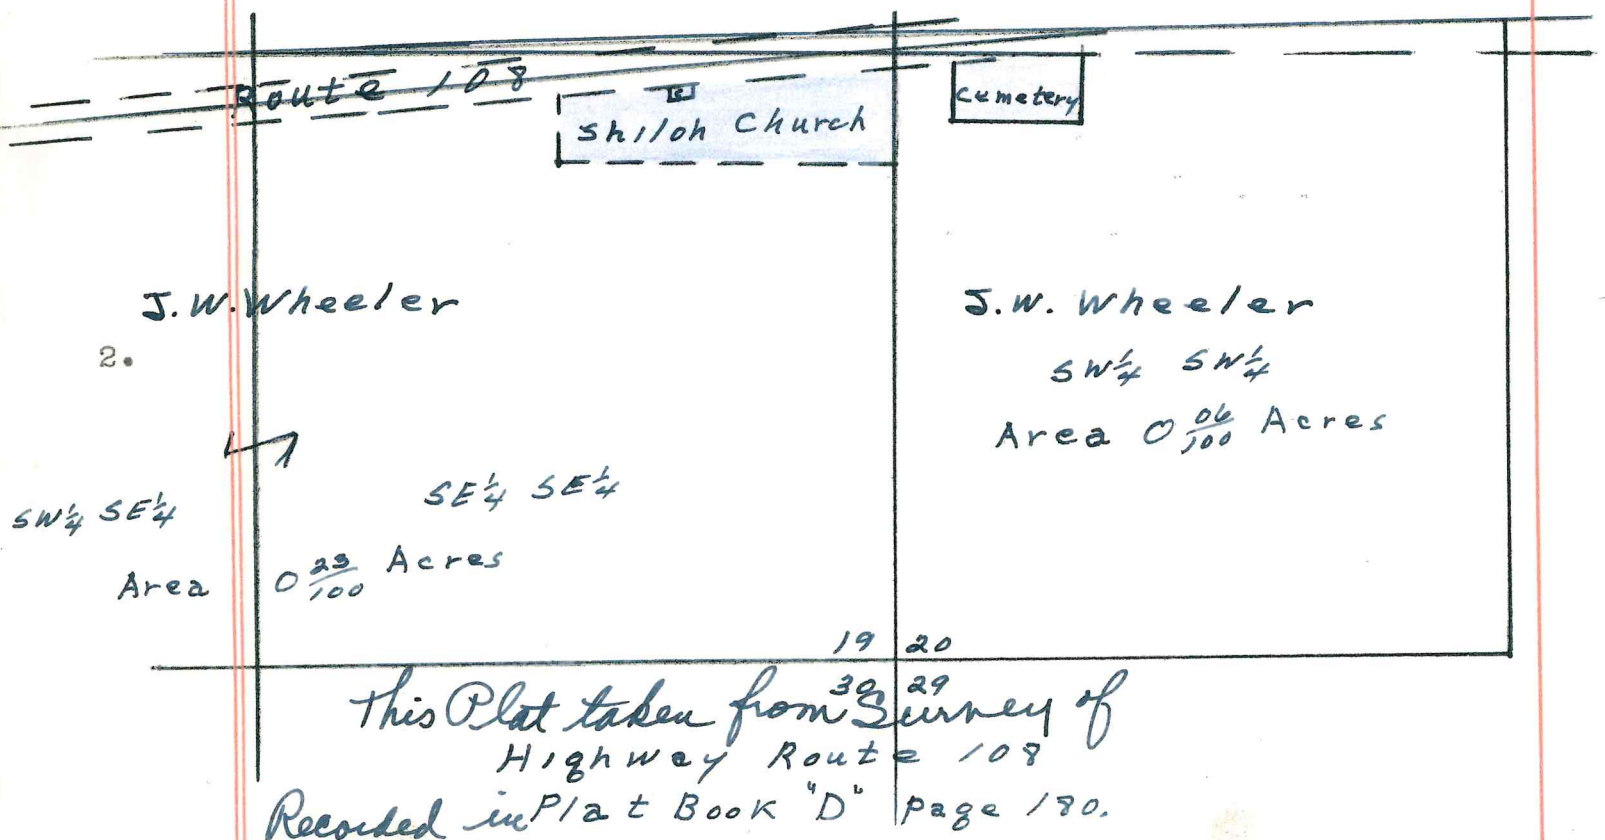 Route 108
Shiloh Church
Cemetery
J.W. Wheeler
J.W. Wheeler
2.
SW¼ SW¼
Area 0 06/100 Acres
SE¼ SE¼
SW¼ SE¼
Area 0 23/100 Acres
19 20
30 29
This Plat taken from Survey of
Highway Route 108
Recorded in Plat Book "D" page 180.